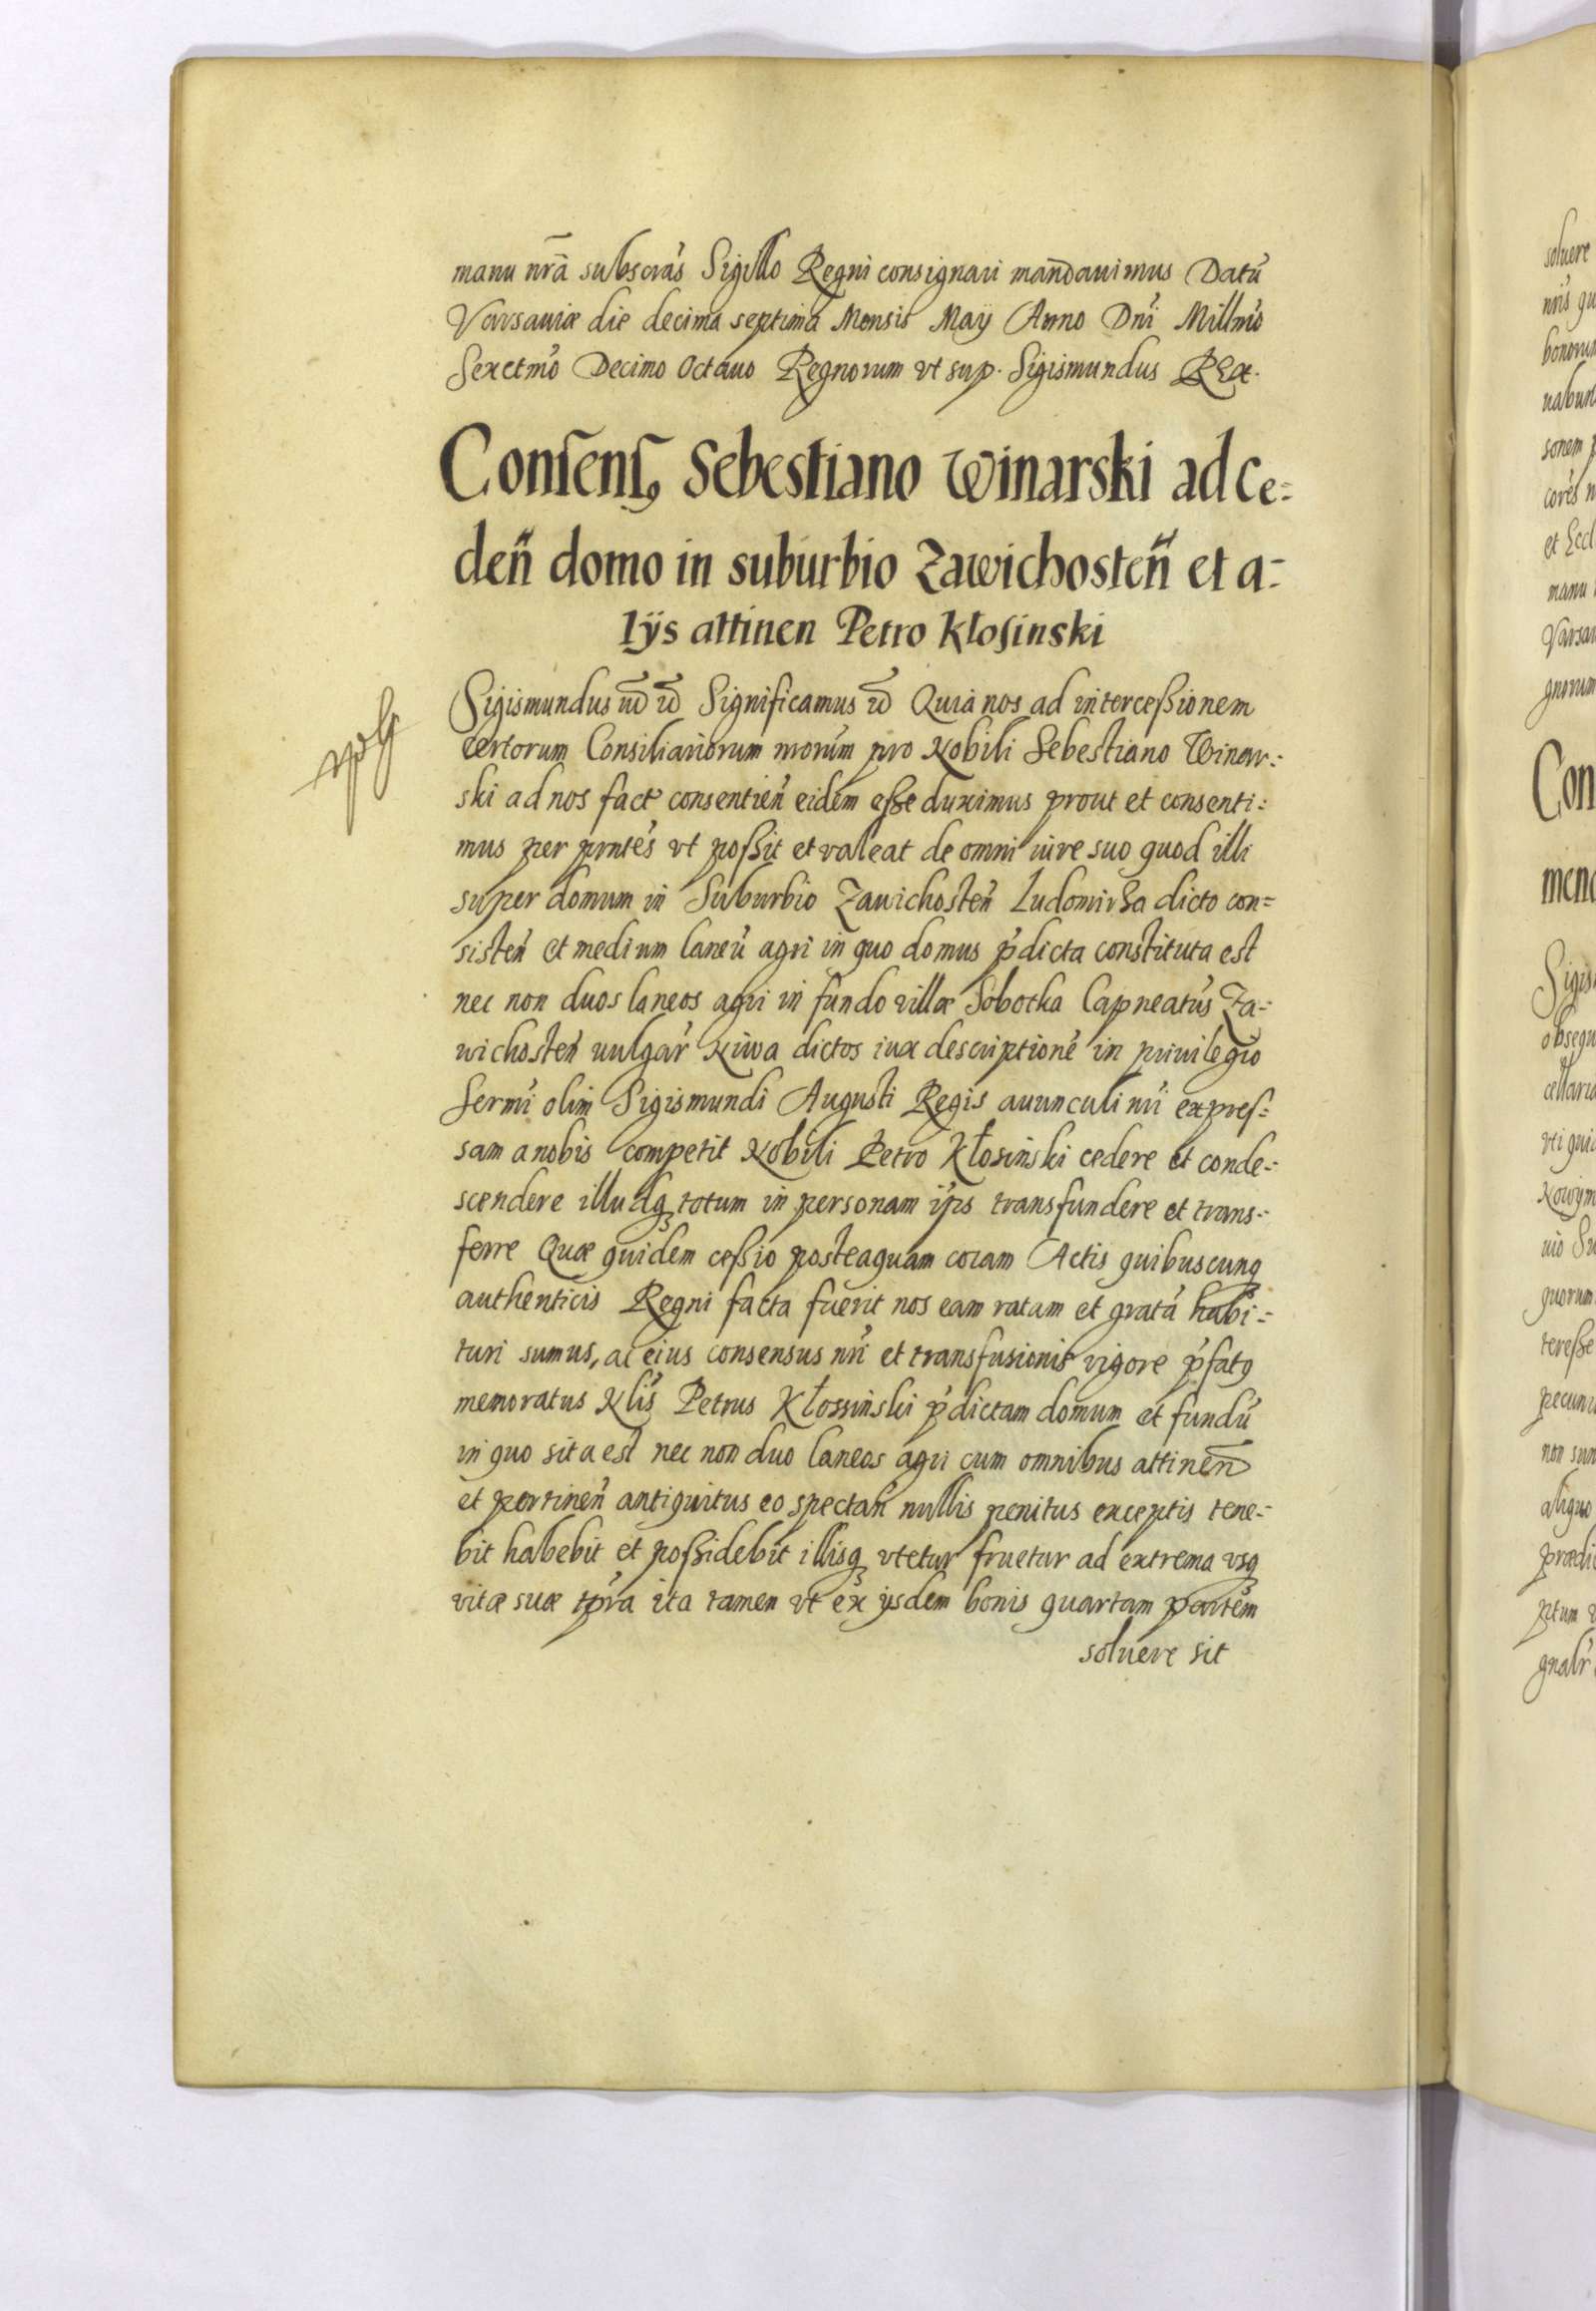 manu nrã subscrãs Sigillo Regni consignari mandauimus Datũ
Varsauiæ die decima septima Mensis Maÿ Anno Dni Millmo
Sexctmo Decimo Octauo Regnorum vt sup. Sigismundus REx.
Consens9 Sebestiano Winarski ad Ce=
deñ domo in suburbio Zawichosteñ et a=
lÿs attinen Petro Kłosinski
Sigismundus Significamus Quia nos ad intercessionem
certorum Consiliariorum nrorum pro Nobili Sebestiano Winar=
ski ad nos fact consentieñ eidem esse duximus prout et consenti=
mus per pñtes vt possit et valeat de omni iure suo quod illi
super domum in Suburbio Zauichosteñ Ludomirka dicto con=
sisteñ et medium laneũ agri in quo domus p̃dicta constituta est
nec non duos laneos agri in fundo villæ Sobotka Capneatus Za=
wichosteñ uulgar̃ Niwa dictos iux descriptionẽ in priuilegio
Sermi olim Sigismundi Augusti Regis auunculi nri expres=
sam a nobis competit Nobili Petro Kłosinski cedere et conde=
scendere illudq totum in personam ips transfundere et trans=
ferre Quæ quidem cessio posteaquam coram Actis quibuscunq
authenticis Regni facta fuerit nos eam ratam et gratã habi=
turi sumus, ac eius consensus nri et transfusionis vigore p̃fat9
memoratus Nlis Petrus Kłossinski p̃dictam domum et fundũ
in quo sita est nec non duo laneos agri cum omnibus attineñ
et pertineñ antiquitus eo spectañ nullis penitus exceptis tene=
bit habebit et possidebit illisq vtetur fruetur ad extrema vsq
vitæ suæ tpra ita tamen vt ex ijsdem bonis quartam partem
soluere sit
soluere
nris qu
bonorum
uabunt
sonem p
cores n
et Eccl
manu
Varsau
gnorum
Con
menc
Sigis
obsequ
cellaria
rei qui
Nowym
uio Su
quorum
teresse
pecuni
non sun
aliquo
prædi
ptum
gnalr